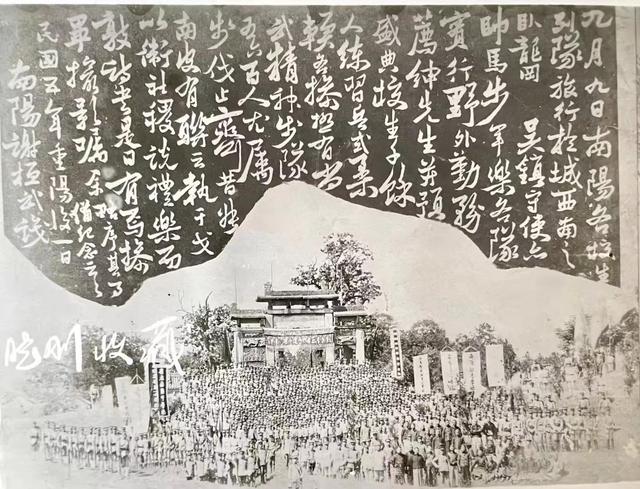 九月九日南陽各校生
列隊旅行於城西南之
臥龍岡 吳鎮守使亦
帥馬步軍樂各隊
實行野外勤務
薦紳先生并預
盛典校生千餘
人練習兵式柔
輭各操極有尚
武精神步隊
五六百人尤属
步伐止齊昔
南皮有聯云執干戈
以衛社稷說禮樂而
敦詩書是日有馬操
畢撮影囑余序其事
紀念云
民國五年重陽後一日
南陽謝恒武識
收藏